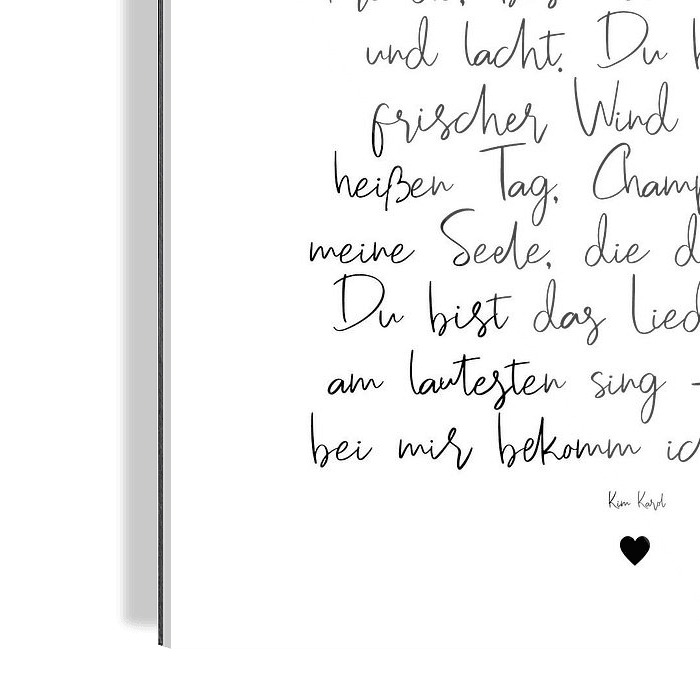 und lacht. Du
frischer Wind
heißen Tag, Champ
meine Seele, die d
Du bist das Lied
am lautesten sing -
bei mir bekomm ic
Kim Karol